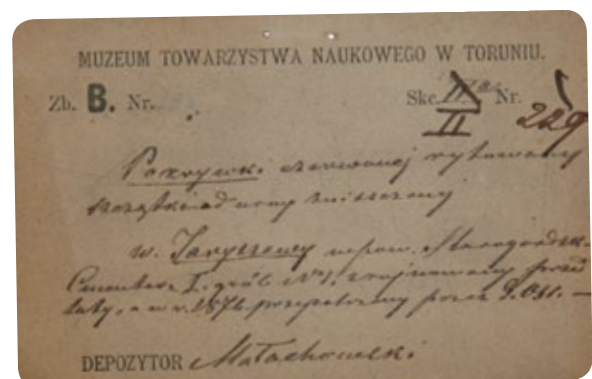 MUZEUM TOWARZYSTWA NAUKOWEGO W TORUNIU.
Zb. B. Nr. Skc. II Nr. 229
Pokrywki czerwonej rytowany
urny zniszczony
w. w pow. Starogardzk.
Cmentarz I. grób No 1. zrujnowany przed
laty, a w r. 1876 przez G. Oss. —
DEPOZYTOR Małachowski